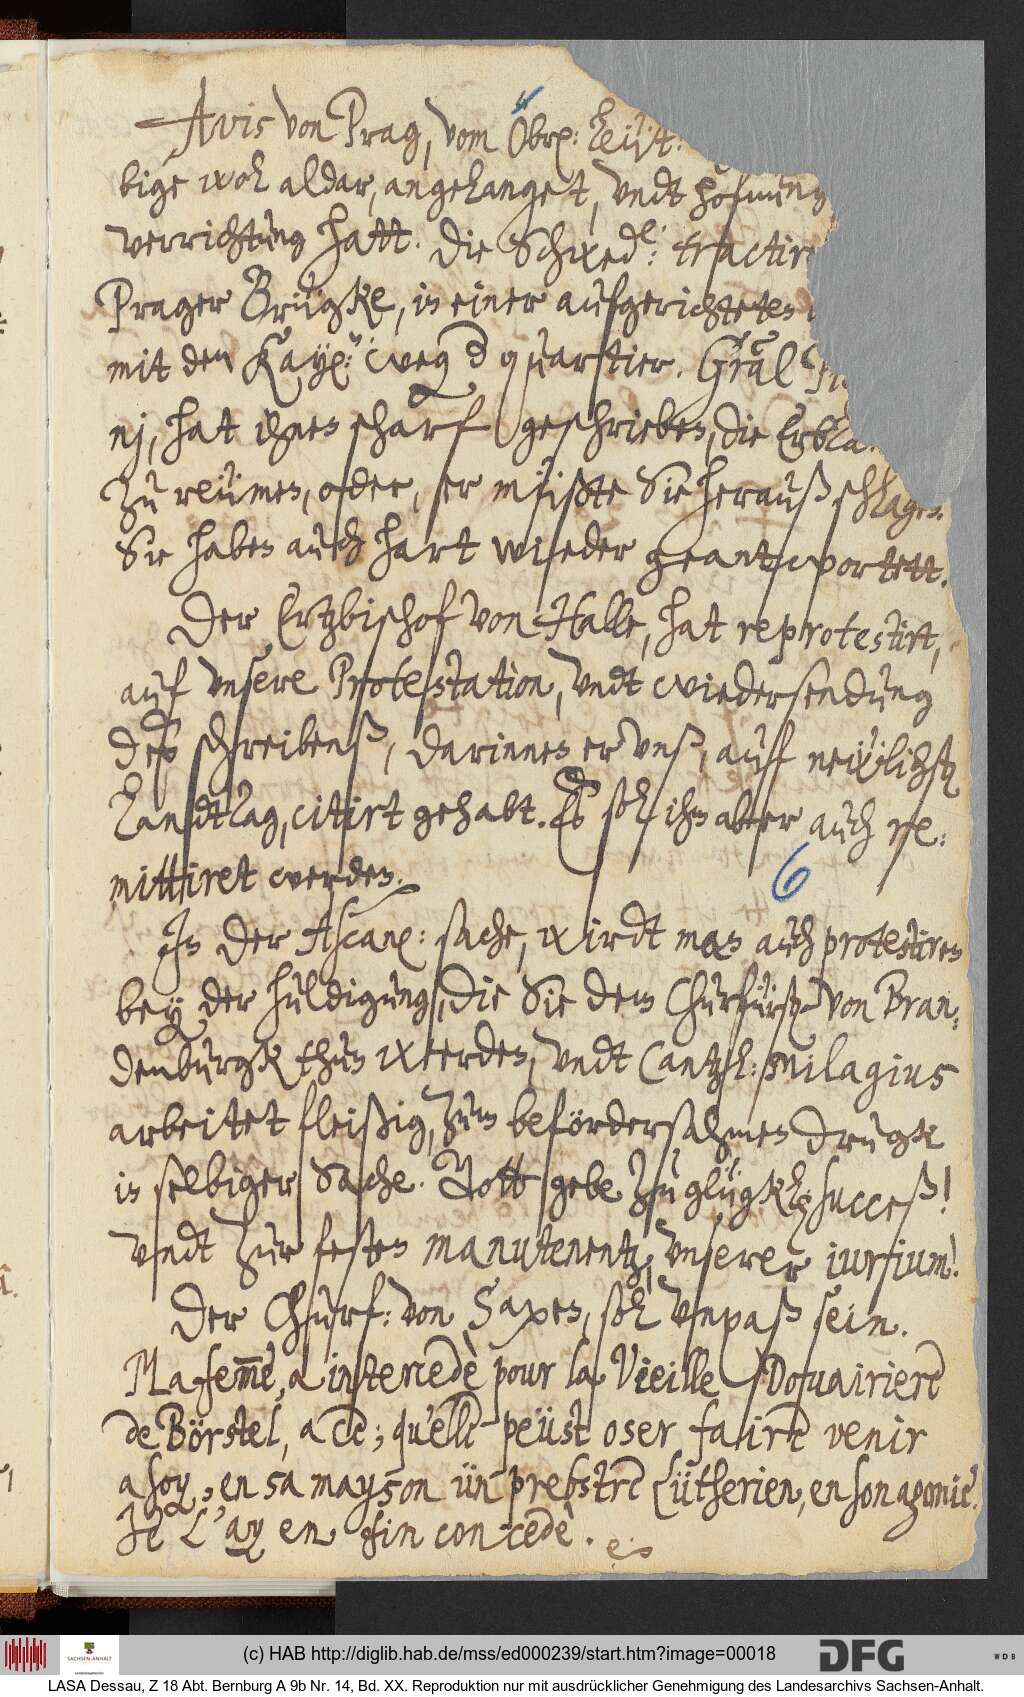 Avis von Prag, vom Obr. Leüt:
bige wol aldar, angelanget, undt hofnung
verrichtung hatt. Die Schwed: tractir
Prager Brügke, in einer aufgerichteten
mit den Kay: weg quartier. Gral
nj, hat ihnen scharf geschrieben, die Erbla
zu reümen, oder, er müßte Sie herauß schlagen
Sie haben auch hart wieder geantwortett.
Der Ertzbischof von Halle, hat reprotestirt,
auf unsere Protestation, undt wiedersendung
deß schreibenß, darinnen er unß, auf neülichst
Landtag, citirt gehabt. Es sol ihm aber auch re:
mittiret werden.
6
In der Ascan: sache, wirdt man auch protestiren
bey der huldigung, die Sie dem Churfürst von Bran:
denburgk thun werden, undt Cantzl: Milagius
arbeitet fleißig, zum befördersahmen drugk
in selbiger Sache. Gott gebe zu glügkl: succeß!
undt zur festen manutenentz, unserer iurium!
Der Churf: von Saxen, sol unpaß sein.
Ma feme, a intercedè pour la Vieille Douairiere
de Börstel, a ce; qu'elle peüst oser faire venir
a soy, en sa mayson ün prebstre Lütherien, en son agonie.
Je L'ay en fin concedè.
(c) HAB http://diglib.hab.de/mss/ed000239/start.htm?image=00018
SACHSEN-ANHALT
DFG
WDB
LASA Dessau, Z 18 Abt. Bernburg A 9b Nr. 14, Bd. XX. Reproduktion nur mit ausdrücklicher Genehmigung des Landesarchivs Sachsen-Anhalt.